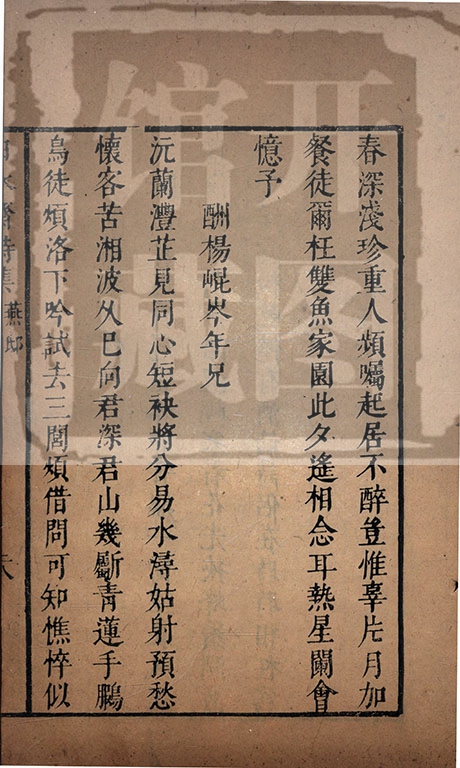 春深淺珍重人頻囑起居不醉豈惟辜片月加
餐徒爾枉雙魚家園此夕遙相念耳熱星闌會
憶予
酬楊崐岑年兄
沅蘭灃芷見同心短袂將分易水潯姑射預愁
懷客苦湘波久已向君深君山幾斸青蓮手鵬
鳥徒煩洛下吟試去三閭煩借問可知憔悴似
詩集 燕邸